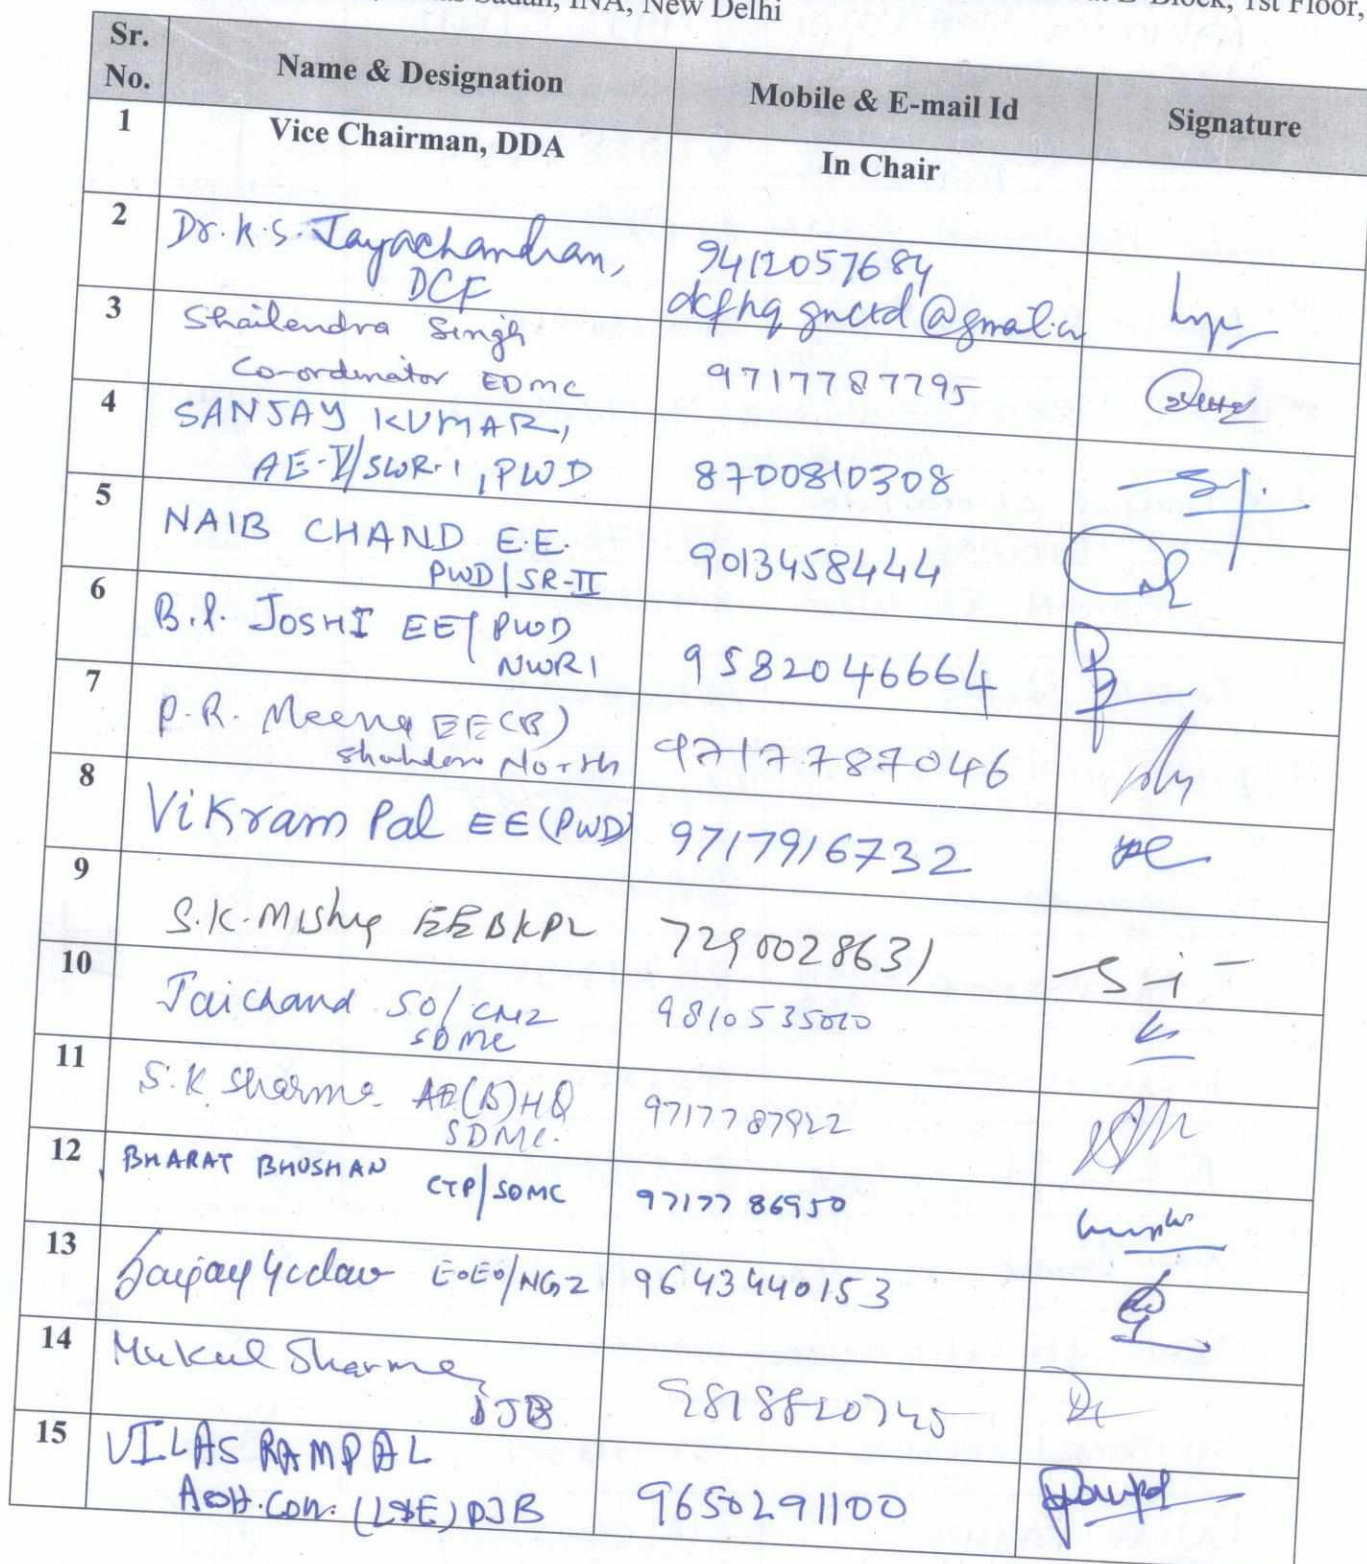 Sadan, INA, New Delhi
Block, 1st Floor,
Sr. No. Name & Designation Mobile & E-mail Id Signature
1 Vice Chairman, DDA In Chair
2 Dr. K.S. Jayachandran, 9412057684
DCF dcfhq gnctd@gmail.
3 Shailendra Singh
Co-ordinator EDMC 9717787795
4 SANJAY KUMAR,
AE-V/SWR-1, PWD 8700810308
5 NAIB CHAND EE. 9013458444
PWD/SR-II
6 B.P. JOSHI EE/PWD 9582046664
NWR1
7 P.R. Meena EE(B) 9717787046
North
8 Vikram Pal EE(PWD) 9717916732
9 S.K. Mishra EE 7290028631
10 Jaichand SO/ 9810535010
SDMC
11 S.K. Sharma. AE(B)HQ
SDMC.
12 BHARAT BHUSHAN CTP/SDMC 9717786950
13 Yadav 9643440153
14 Mukul Sharma
DJB
15 VILAS RAMPAL
DJB 9650291100